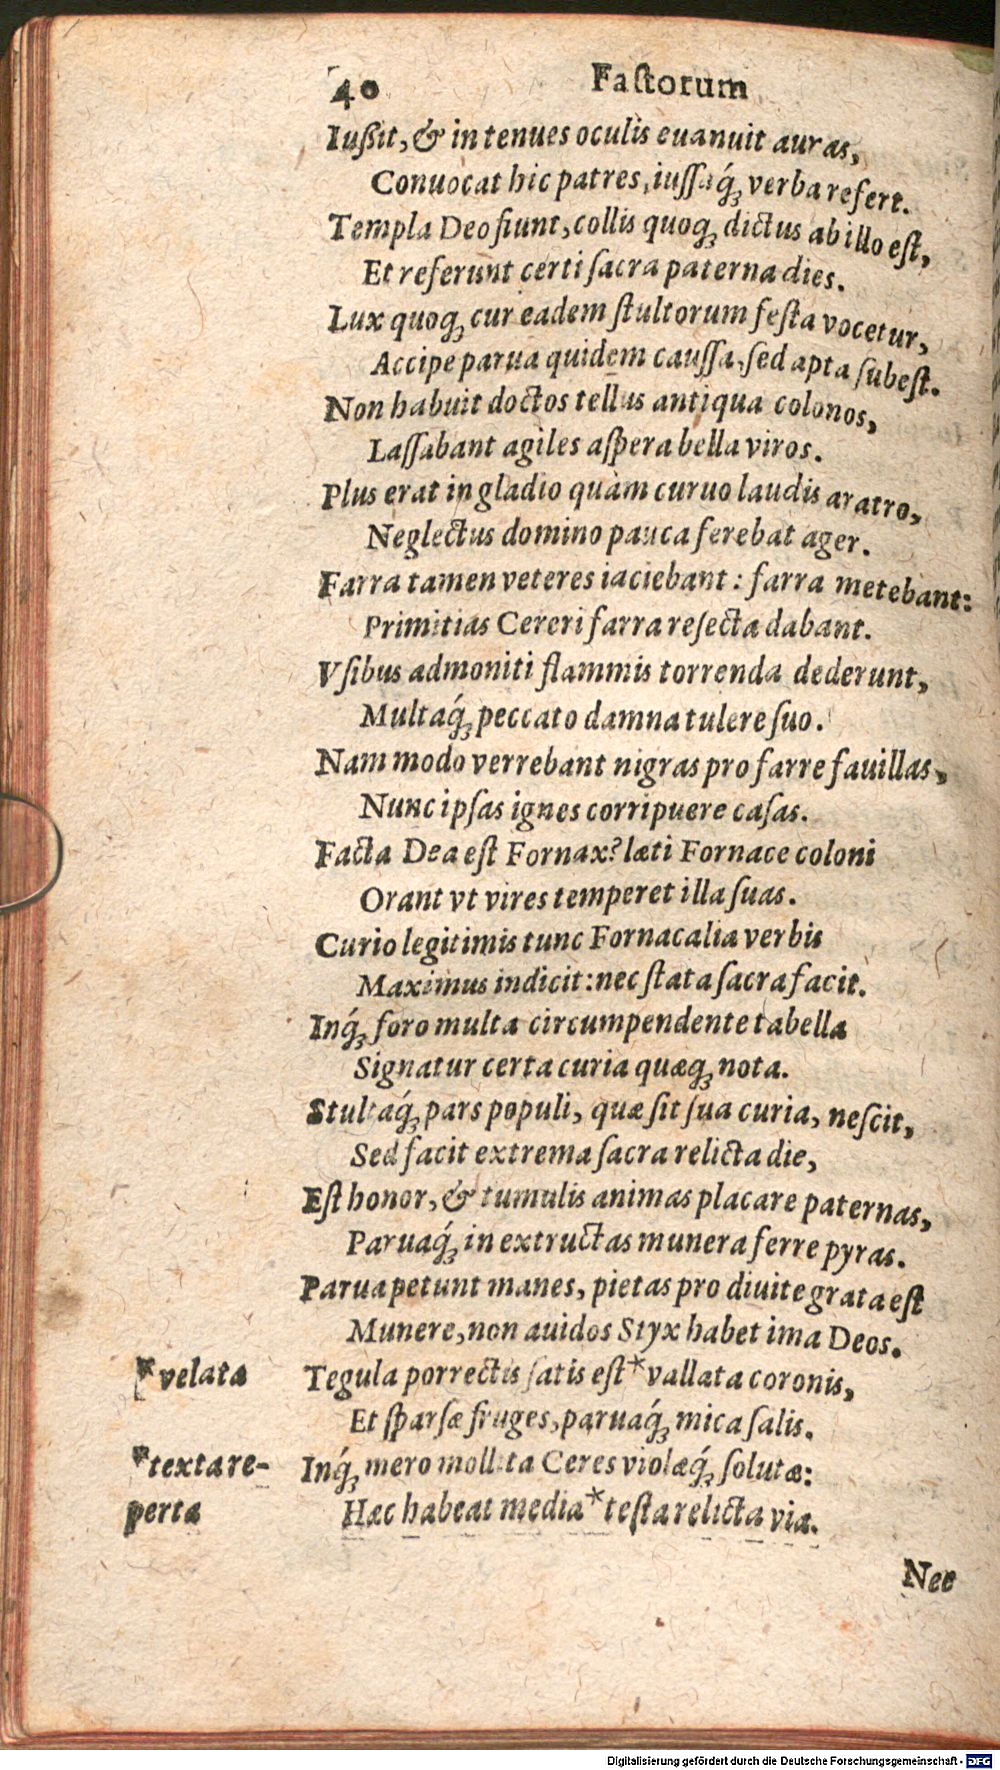 40 Faſtorum
Iußit, & in tenues oculis euanuit auras,
Conuocat hic patres, iuſſaq́; verba refert.
Templa Deo fiunt, collis quoq; dictus ab illo eſt,
Et referunt certi ſacra paterna dies.
Lux quoq; cur eadem ſtultorum feſta vocetur,
Accipe parua quidem cauſſa, ſed apta ſubeſt.
Non habuit doctos tellus antiqua colonos,
Laſſabant agiles aſpera bella viros.
Plus erat in gladio quàm curuo laudis aratro,
Neglectus domino pauca ferebat ager.
Farra tamen veteres iaciebant: farra metebant:
Primitias Cereri farra reſecta dabant.
Vſibus admoniti flammis torrenda dederunt,
Multaq́; peccato damna tulere ſuo.
Nam modo verrebant nigras pro farre fauillas,
Nunc ipſas ignes corripuere caſas.
Facta Dea eſt Fornax? læti Fornace coloni
Orant vt vires temperet illa ſuas.
Curio legitimis tunc Fornacalia verbis
Maximus indicit: nec ſtata ſacra facit.
Inq́; foro multa circumpendente tabella
Signatur certa curia quæq; nota.
Stultaq́; pars populi, quæ ſit ſua curia, neſcit,
Sed facit extrema ſacra relicta die,
Eſt honor, & tumulis animas placare paternas,
Paruaq́; in extructas munera ferre pyras.
Parua petunt manes, pietas pro diuite grata eſt
Munere, non auidos Styx habet ima Deos.
*velata Tegula porrectis ſatis eſt *vallata coronis,
Et ſparſæ fruges, paruaq́; mica ſalis.
*texta re- Inq́; mero mollita Ceres violæq́; ſolutæ:
perta Hæc habeat media *teſta relicta via.
Nec
Digitalisierung gefördert durch die Deutsche Forschungsgemeinschaft - DFG